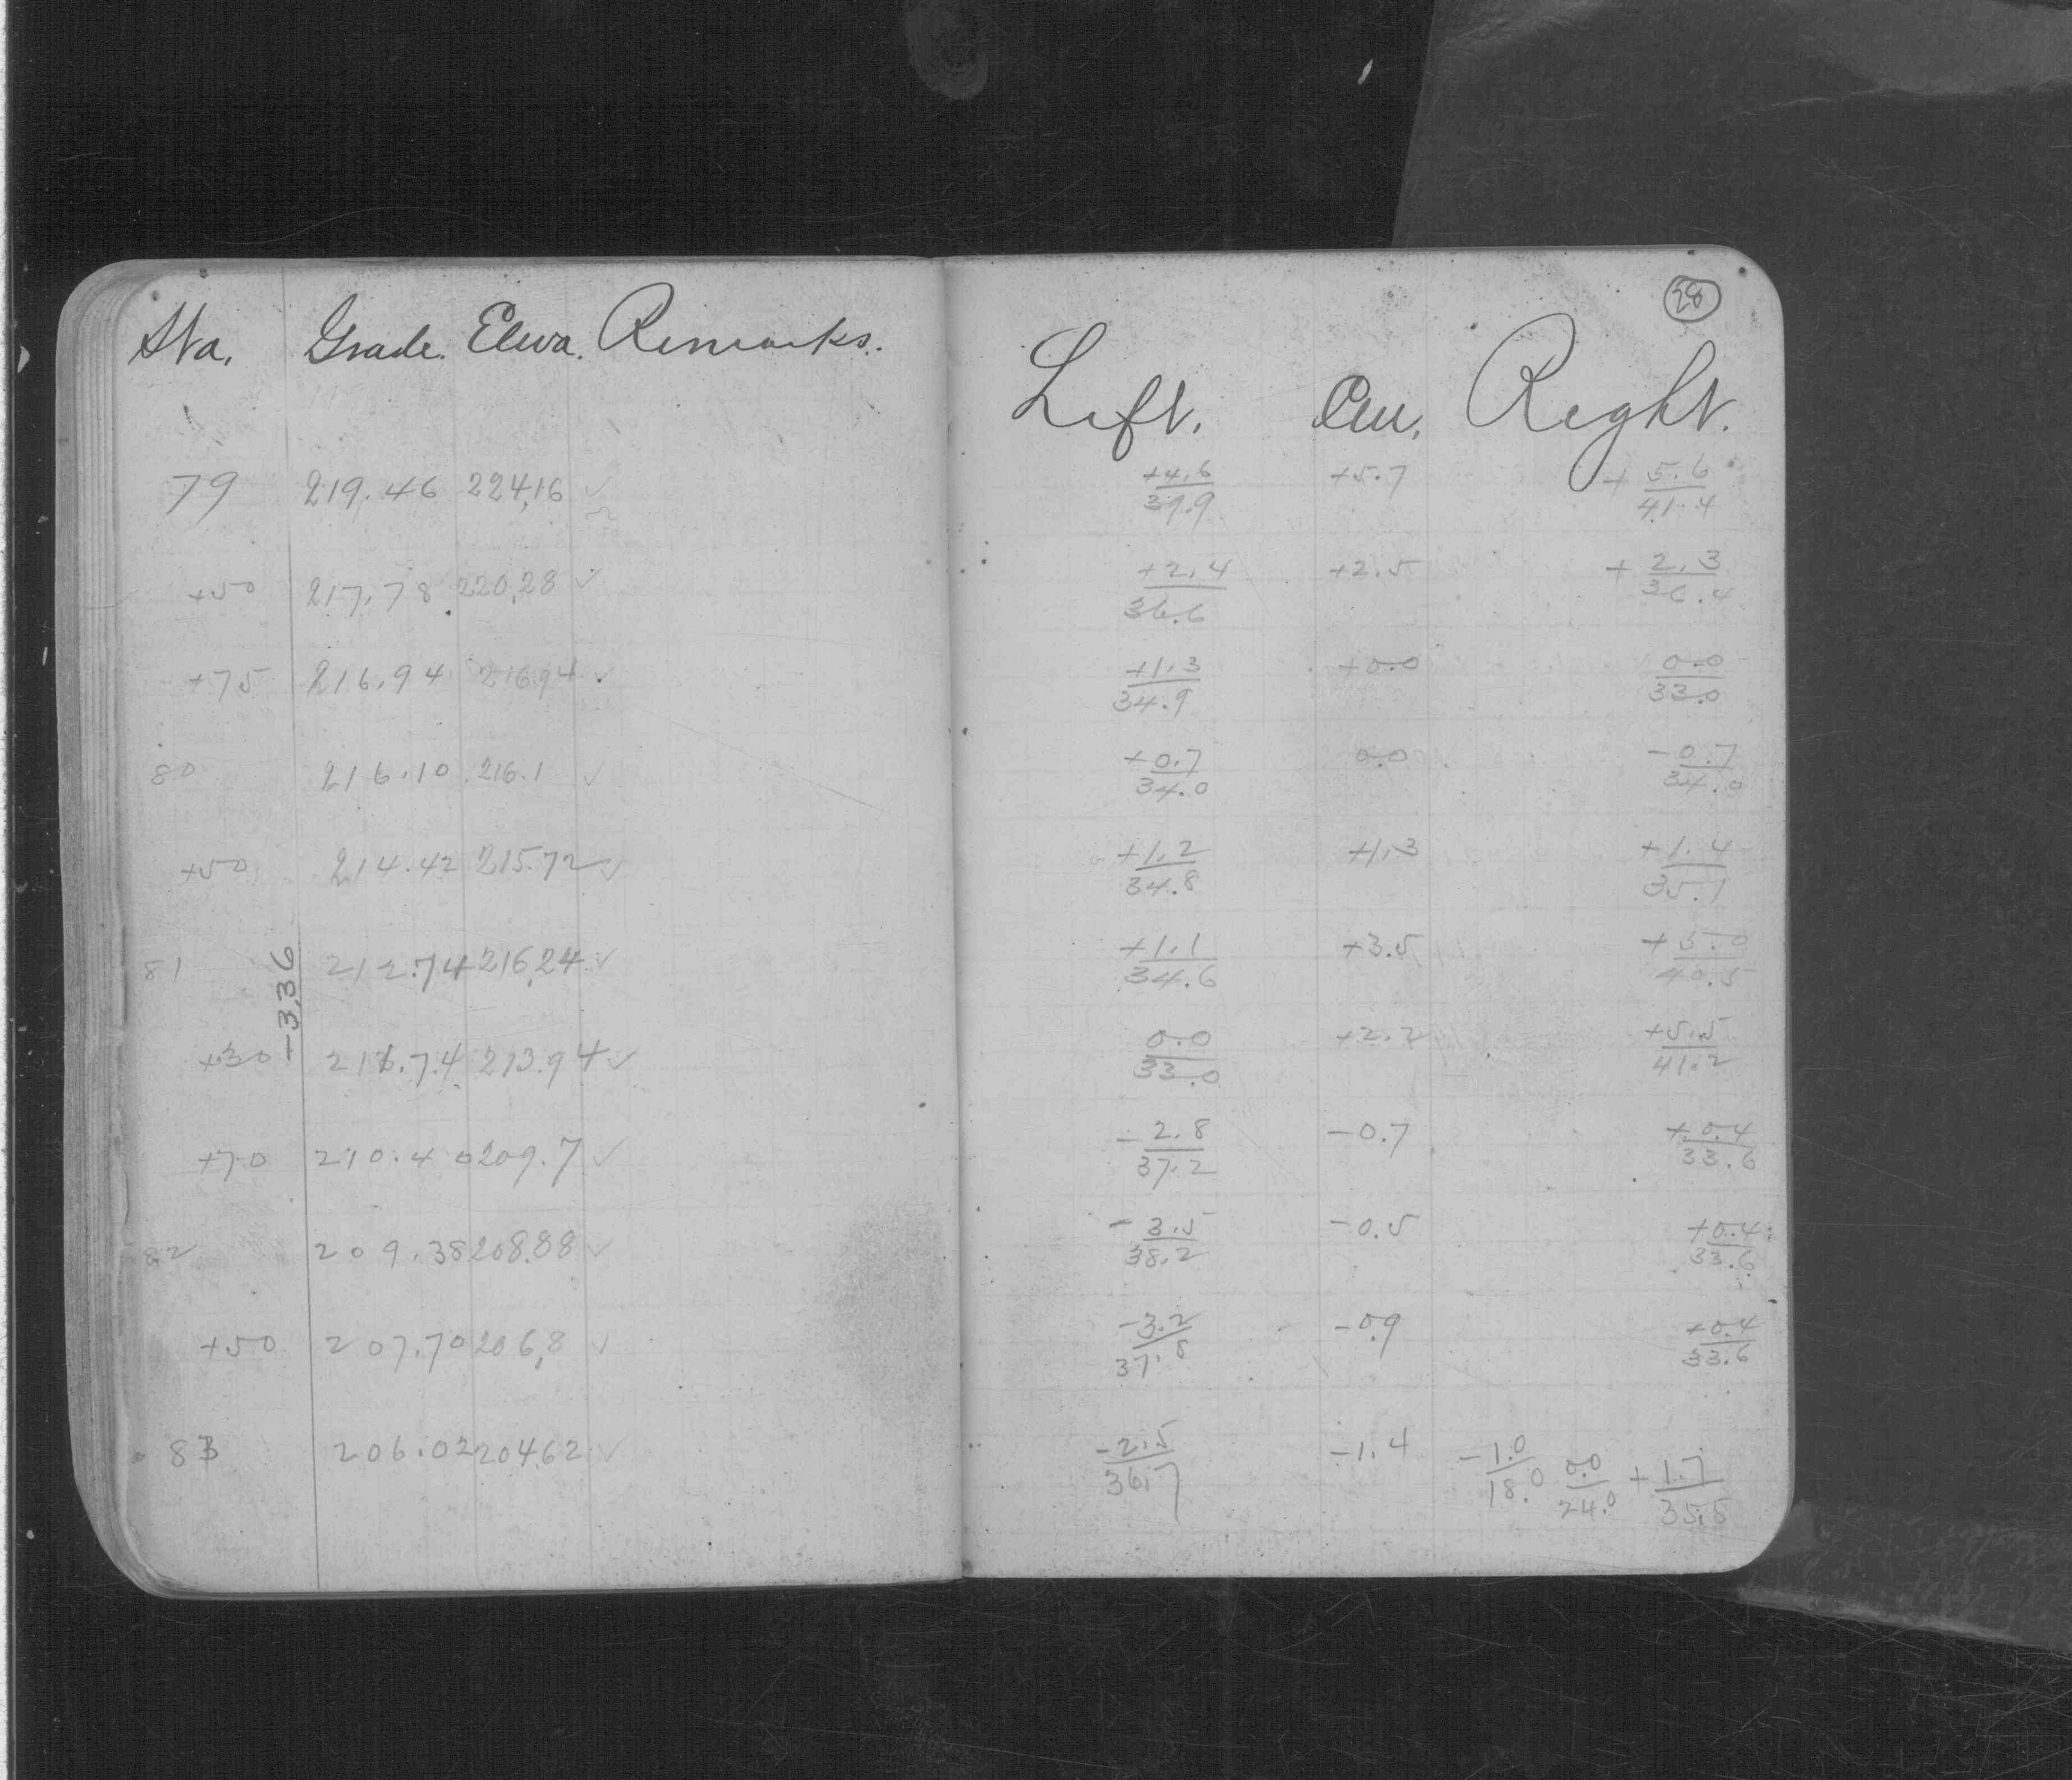 28
Sta. Grade. Eleva. Remarks. Left. Cen. Right.
79 219.46 224.16 ✓ +4.6/39.9 +5.7 +5.6/41.4
+50 217.78 220.28 ✓ +2.4/36.6 +2.5 +2.3/36.4
+75 216.94 216.94 ✓ +1.3/34.9 +0.0 0.0/33.0
80 216.10 216.1 ✓ +0.7/34.0 0.0 -0.7/34.0
+50 214.42 215.72 ✓ +1.2/34.8 +1.3 +1.4/35.1
81 212.74 216.24 ✓ +1.1/34.6 +3.5 +5.0/40.5
-3.36
+30 211.74 213.94 ✓ 0.0/33.0 +2.2 +5.5/41.2
+70 210.40 209.7 ✓ -2.8/37.2 -0.7 +0.4/33.6
82 209.38 208.88 ✓ -3.5/38.2 -0.5 +0.4/33.6
+50 207.70 206.8 ✓ -3.2/37.8 -0.9 +0.4/33.6
83 206.02 204.62 ✓ -2.5/36.7 -1.4 -1.0/18.0 0.0/24.0 +1.7/35.5